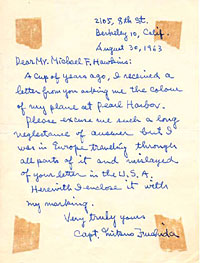 2105, 8th St.
Berkeley 10, Calif.
August 30, 1963
Dear Mr. Michael F. Hawkins:
A cup of years ago, I received a
letter from you asking me the colour
of my plane at Pearl Harbor.
Please excuse such a long
neglectance of answer but I
was in Europe traveling through
all parts of it and mislayed
of your letter in the U.S.A.
Herewith I enclose it with
my marking.
Very truly yours
Capt. Mitsuo Fuchida